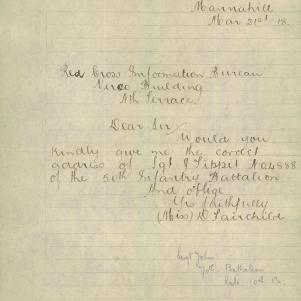 Mannahill
Mar 21st 18.
Red Cross Information Bureau
Verco Building
Nth Terrace
Dear Sir
Would you
kindly give me the correct
address of Sgt J Tippet No 4888
of the 50th Infantry Battalion
And oblige
Yrs faithfully
(Miss) D Fairchild
Sergt John
Battalion